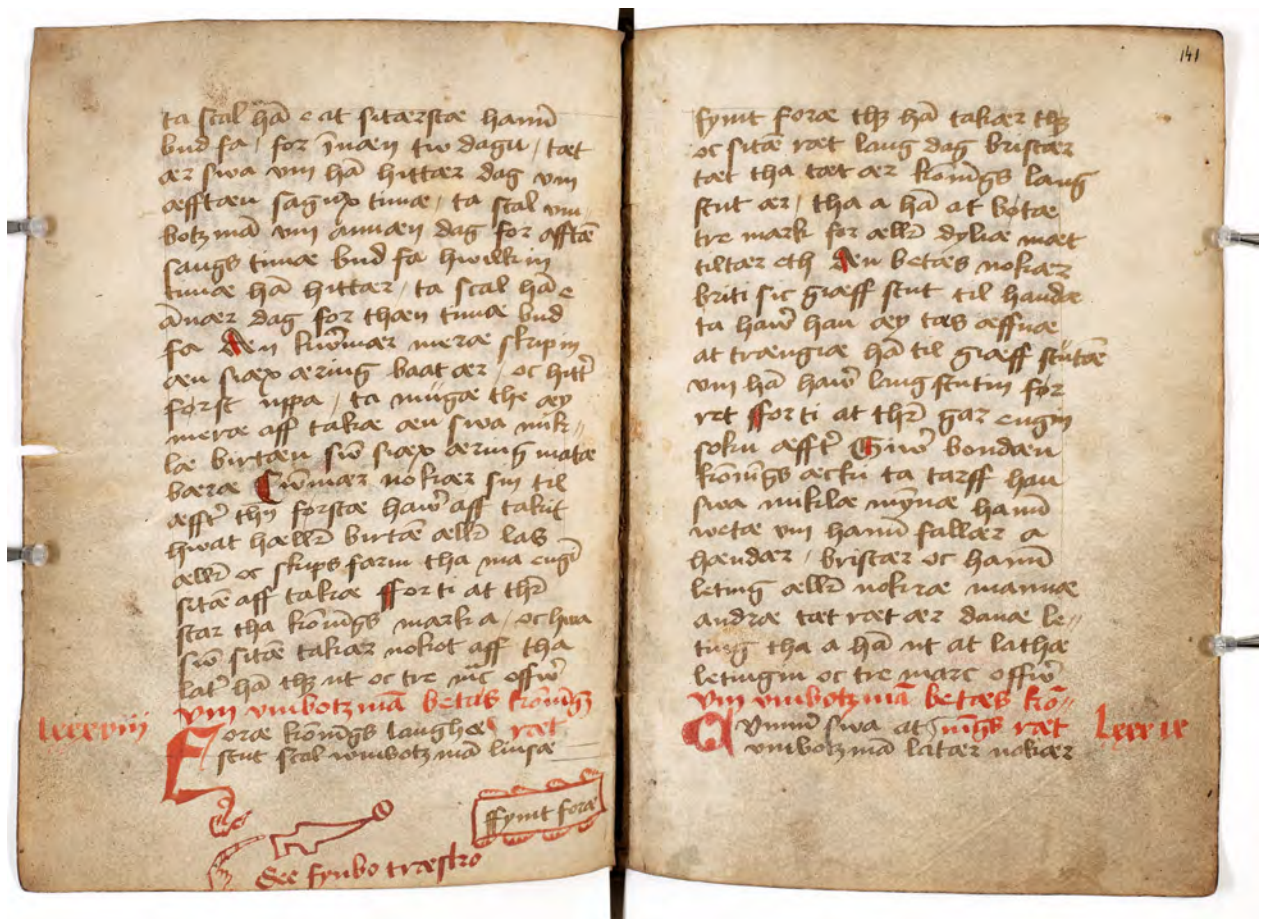 ta scal hā e at sitærstæ hanū
bud fa / for īnæn tw dagu / tæt
ær swa vm hā hittær dag vm
æfftæn sagux timæ / ta scal vm
botz mā vm annæn dag for æfftæ̅
saugs timæ bud fa hwilkin
timæ hā hittær / ta scal hā e
ānær dag for thæn timæ bud
fa Æn kwmær meræ skip in
æn siæx æring baat ær / oc hittr̄
forst uppa / ta mugæ the æy
meræ aff takæ æn swa mik //
læ birtæn sw̄ siæx æring matæ
bæræ Cwmær nokær sin til
æfftr̄ thy forstæ haw̄ aff takit
hwat hællr̄ birtæ ællr̄ las
ællr̄ oc skips farm tha ma engī
sitæ aff takæ ffor ti at thr̄
star tha konīgs mark a / oc hwa
sw̄ sitæ takær nokot aff tha
latr̄ hā thꝫ ut oc tre mc̄ offw̄
vm vmbotz mā betæs konīg
lxxxviij
Foræ konīgs laugheæ ræt
scut scal wmbotz mā liusæ
ffymt foræ
See fynbo træsko
141
fymt foræ thꝫ hā takær thꝫ
oc sitæ ræt laug dag bristær
tæt tha tæt ær konīgs laug
scut ær / tha a hā at botæ
tre mark for ællr̄ dyliæ mæt
tiltær eth Æn betæs nokær
briti sic giæff scut til handæ
ta haw̄ han æy tæs æffnæ
at trængiæ hā til giæff scutæ
vm hā haw̄ laug scutin for
ret ffor ti at thr̄ gar engin
sokn æfftr̄ Giw̄ bondæn
konīgs æcki ta tarff han
swa miklæ mynæ hanū
wetæ vm hanū fallær a
hændær / bristær oc hanū
leting ællr̄ nokræ mannæ
andræ tæt ræt ær danæ le //
ting tha a hā ut at lathæ
letingin oc tre marc offw̄
vm vmbotz mā betæs ko̅ //
Cvmm̄ swa at nīgs ræt
lxxxix
vmbotz mā latær nokær